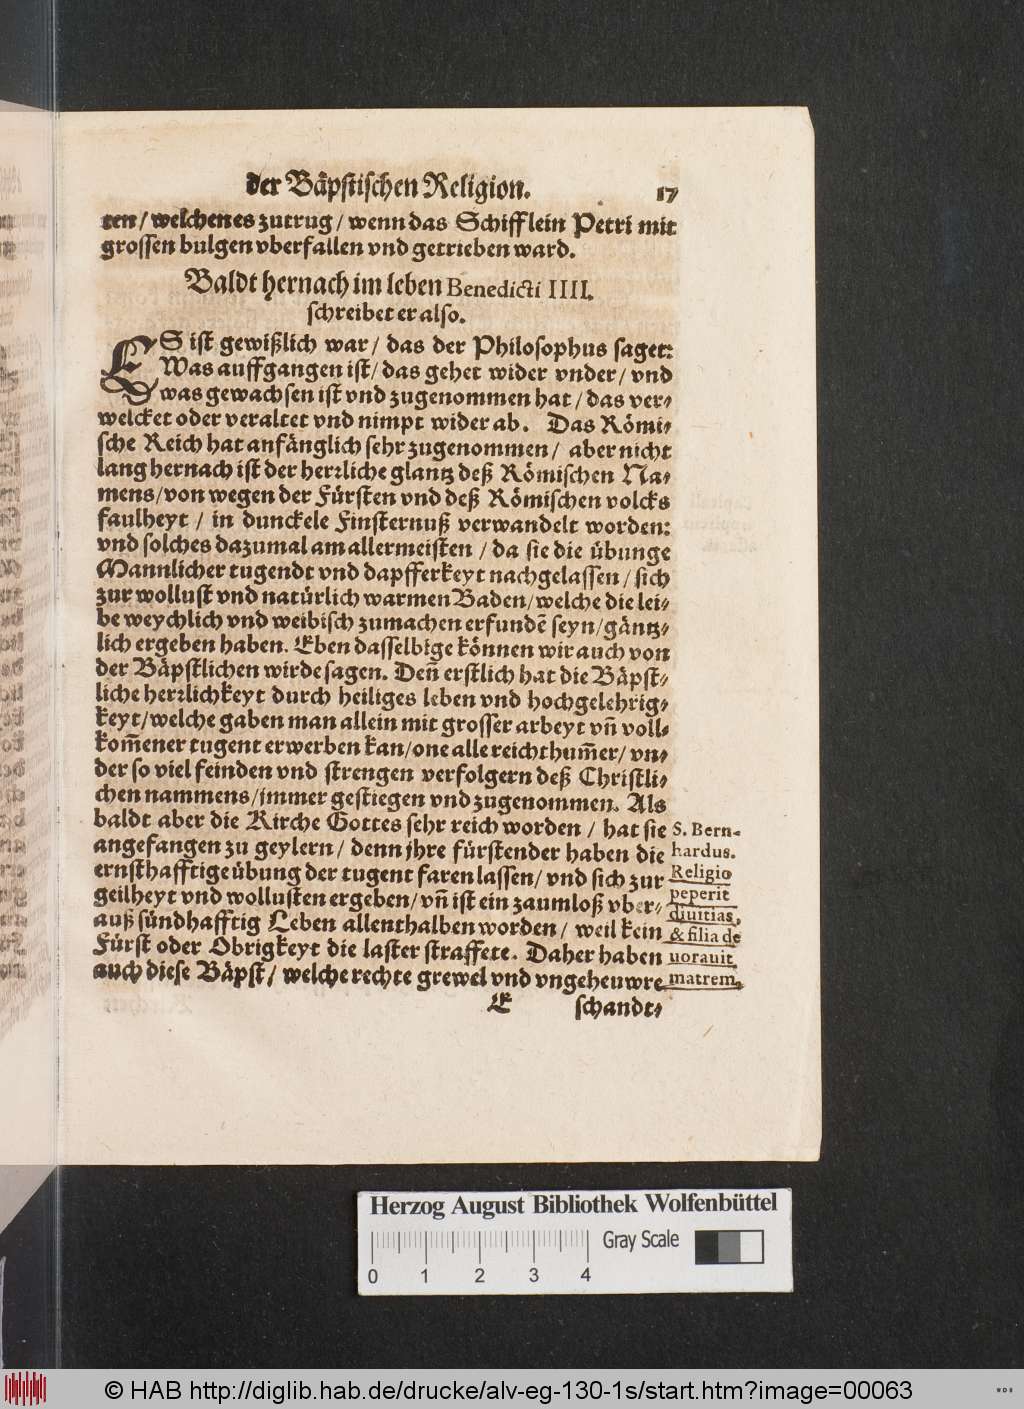 der Bäpstischen Religion. 17
ten / welchen es zutrug / wenn das Schifflein Petri mit
grossen bulgen vberfallen vnd getrieben ward.
Baldt hernach im leben Benedicti IIII.
schreibet er also.
ES ist gewißlich war / das der Philosophus saget:
Was auffgangen ist / das gehet wider vnder / vnd
was gewachsen ist vnd zugenommen hat / das ver⸗
welcket oder veraltet vnd nimpt wider ab. Das Römi⸗
sche Reich hat anfänglich sehr zugenommen / aber nicht
lang hernach ist der herrliche glantz deß Römischen Na⸗
mens / von wegen der Fürsten vnd deß Römischen volcks
faulheyt / in dunckele Finsternuß verwandelt worden:
vnd solches dazumal am allermeisten / da sie die übunge
Mannlicher tugendt vnd dapfferkeyt nachgelassen / sich
zur wollust vnd natürlich warmen Baden / welche die lei⸗
be weychlich vnd weibisch zumachen erfundē seyn / gäntz⸗
lich ergeben haben. Eben dasselbige können wir auch von
der Bäpstlichen wirde sagen. Deñ erstlich hat die Bäpst⸗
liche herrlichkeyt durch heiliges leben vnd hochgelehrig⸗
keyt / welche gaben man allein mit grosser arbeyt vñ voll⸗
kom̃ener tugent erwerben kan / one alle reichthum̃er / vn⸗
der so viel feinden vnd strengen verfolgern deß Christli⸗
chen nammens / immer gestiegen vnd zugenommen. Als
baldt aber die Kirche Gottes sehr reich worden / hat sie
angefangen zu geylern / denn jhre fürstender haben die
ernsthafftige übung der tugent faren lassen / vnd sich zur
geilheyt vnd wollusten ergeben / vñ ist ein zaumloß vber⸗
auß sündhafftig Leben allenthalben worden / weil kein
Fürst oder Obrigkeyt die laster straffete. Daher haben
auch diese Bäpst / welche rechte grewel vnd vngeheuwre
S. Bern-
hardus.
Religio
peperit
diuitias,
& filia de
uorauit
matrem.
E schandt⸗
Herzog August Bibliothek Wolfenbüttel
Gray Scale
0 1 2 3 4
© HAB http://diglib.hab.de/drucke/alv-eg-130-1s/start.htm?image=00063